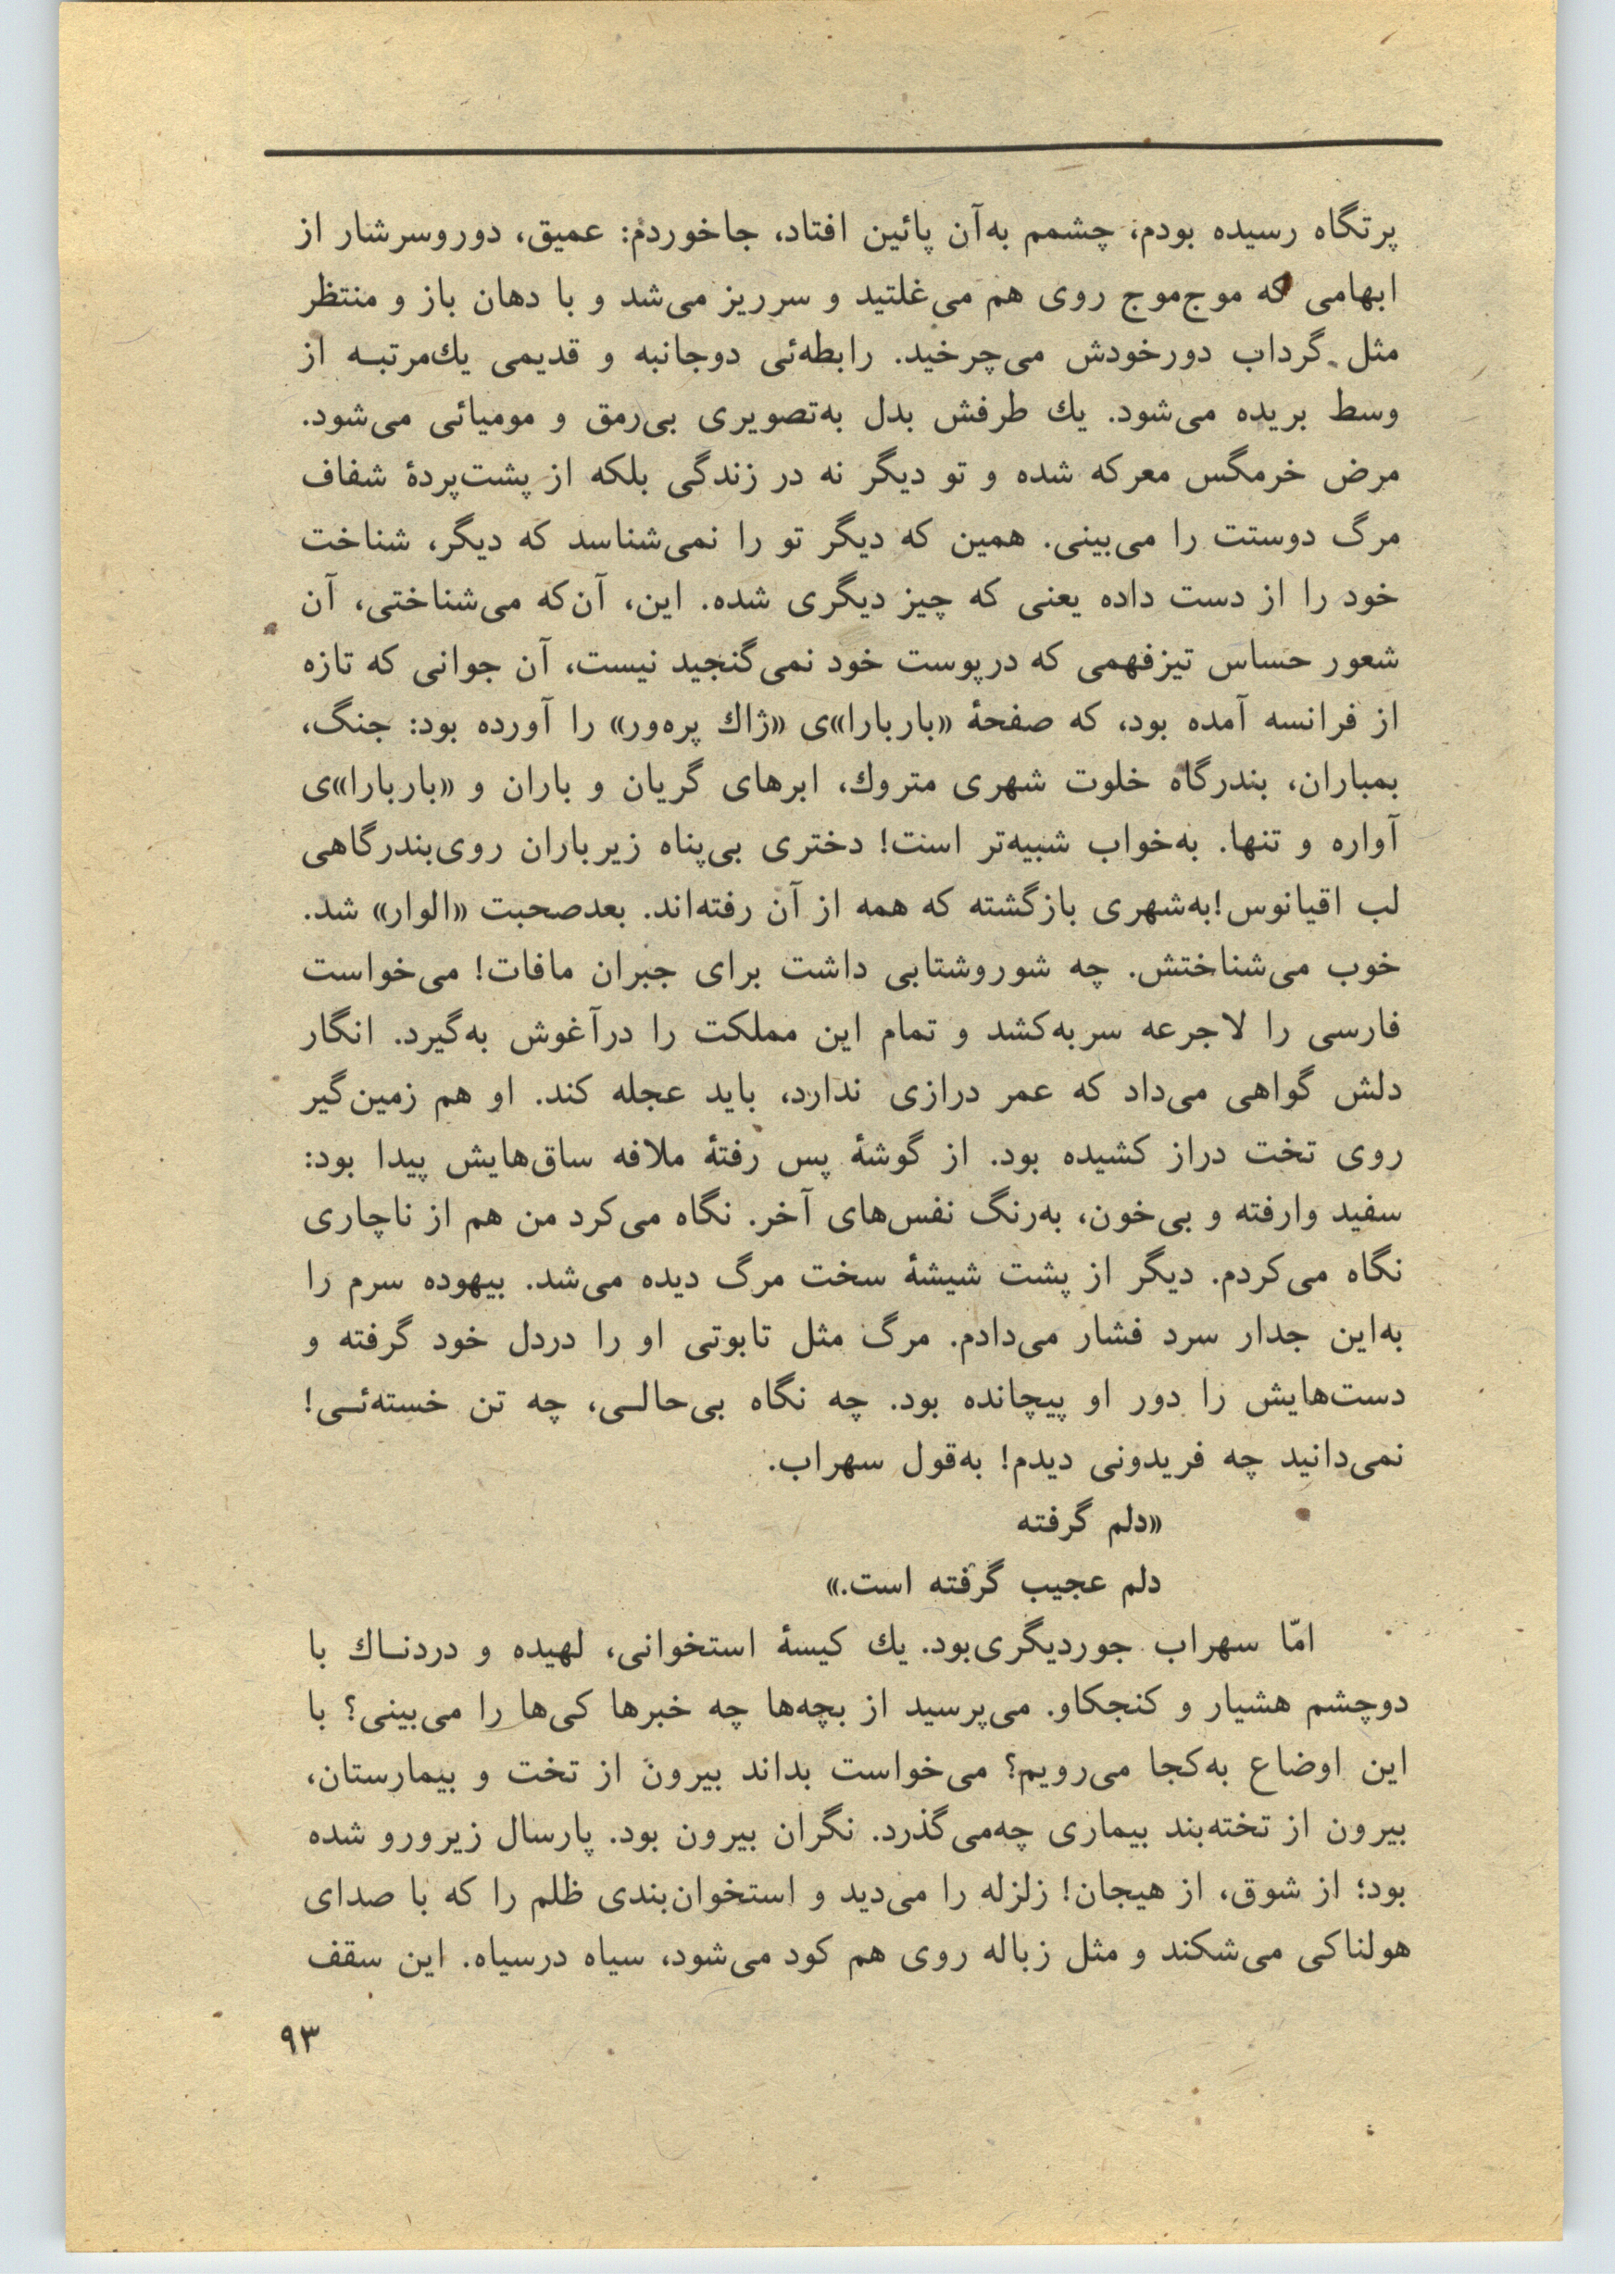 پرتگاه رسیده بودم، چشمم به‌آن پائین افتاد، جاخوردم: عمیق، دوروسرشار از
ابهامی که موج‌موج روی هم می‌غلتید و سرریز می‌شد و با دهان باز و منتظر
مثل گرداب دورخودش می‌چرخید. رابطه‌ئی دوجانبه و قدیمی یك‌مرتبــه از
وسط بریده می‌شود. یك طرفش بدل به‌تصویری بی‌رمق و مومیائی می‌شود.
مرض خرمگس معرکه شده و تو دیگر نه در زندگی بلکه از پشت‌پردۀ شفاف
مرگ دوستت را می‌بینی. همین که دیگر تو را نمی‌شناسد که دیگر، شناخت
خود را از دست داده یعنی که چیز دیگری شده. این، آن‌که می‌شناختی، آن
شعور حساس تیزفهمی که درپوست خود نمی‌گنجید نیست، آن جوانی که تازه
از فرانسه آمده بود، که صفحۀ «باربارا»ی «ژاك پره‌ور» را آورده بود: جنگ،
بمباران، بندرگاه خلوت شهری متروك، ابرهای گریان و باران و «باربارا»ی
آواره و تنها. به‌خواب شبیه‌تر است! دختری بی‌پناه زیرباران روی‌بندرگاهی
لب اقیانوس!به‌شهری بازگشته که همه از آن رفته‌اند. بعدصحبت «الوار» شد.
خوب می‌شناختش. چه شوروشتابی داشت برای جبران مافات! می‌خواست
فارسی را لاجرعه سربه‌کشد و تمام این مملکت را درآغوش به‌گیرد. انگار
دلش گواهی می‌داد که عمر درازی ندارد، باید عجله کند. او هم زمین‌گیر
روی تخت دراز کشیده بود. از گوشۀ پس رفتۀ ملافه ساق‌هایش پیدا بود:
سفید وارفته و بی‌خون، به‌رنگ نفس‌های آخر. نگاه می‌کرد من هم از ناچاری
نگاه می‌کردم. دیگر از پشت شیشۀ سخت مرگ دیده می‌شد. بیهوده سرم را
به‌این جدار سرد فشار می‌دادم. مرگ مثل تابوتی او را دردل خود گرفته و
دست‌هایش را دور او پیچانده بود. چه نگاه بی‌حالــی، چه تن خسته‌ئــی!
نمی‌دانید چه فریدونی دیدم! به‌قول سهراب.
«دلم گرفته
دلم عجیب گرفته است.»
امّا سهراب جوردیگری‌بود. یك کیسۀ استخوانی، لهیده و دردنــاك با
دوچشم هشیار و کنجکاو. می‌پرسید از بچه‌ها چه خبرها کی‌ها را می‌بینی؟ با
این اوضاع به‌کجا می‌رویم؟ می‌خواست بداند بیرون از تخت و بیمارستان،
بیرون از تخته‌بند بیماری چه‌می‌گذرد. نگران بیرون بود. پارسال زیرورو شده
بود؛ از شوق، از هیجان! زلزله را می‌دید و استخوان‌بندی ظلم را که با صدای
هولناکی می‌شکند و مثل زباله روی هم کود می‌شود، سیاه درسیاه. این سقف
۹۳